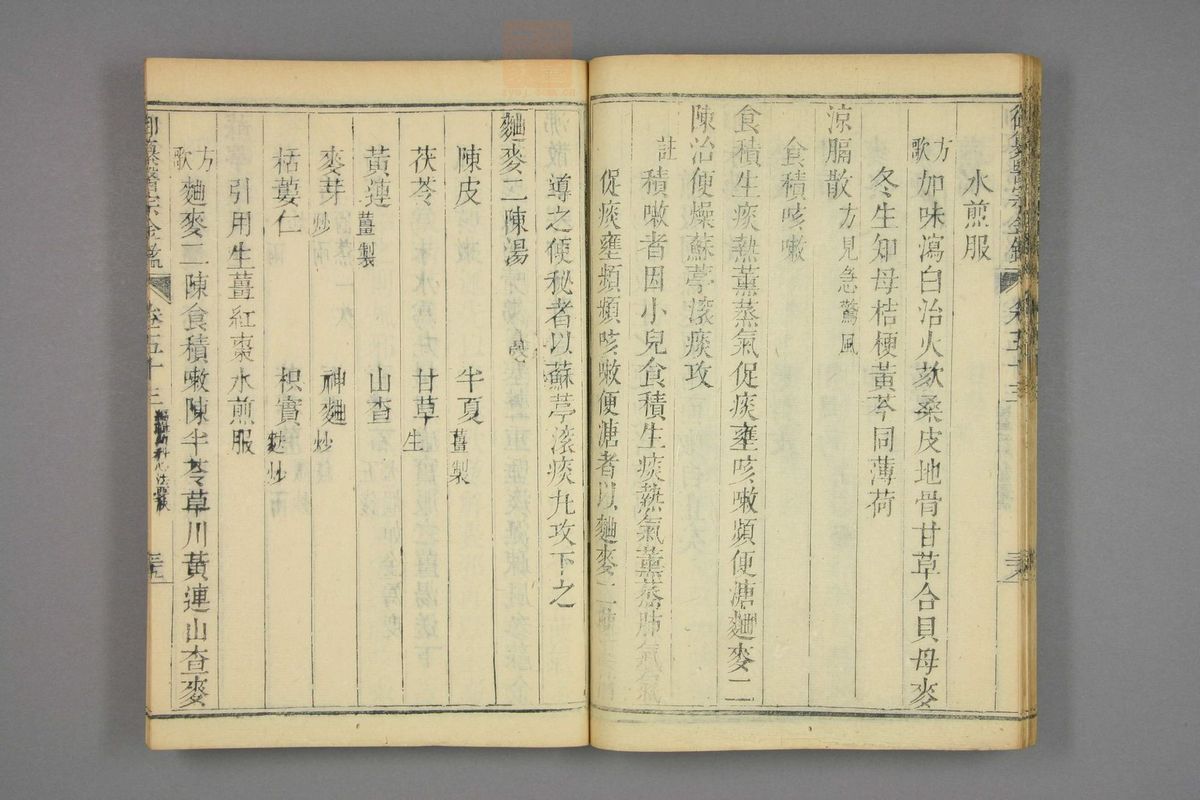 水煎服
方歌 加味瀉白治火欬桑皮地骨甘草合貝母麥
冬生知母桔梗黃芩同薄荷
涼膈散 方見急驚風
食積咳嗽
食積生痰熱薰蒸氣促痰壅咳嗽頻便溏麯麥二
陳治便燥蘇葶滾痰攻
註 積嗽者因小兒食積生痰熱氣薰蒸肺氣氣
促痰壅頻頻咳嗽便溏者以麯麥二陳
導之便秘者以蘇葶滾痰丸攻下之
麯麥二陳湯
陳皮 半夏 薑製
茯苓 甘草 生
黃連 薑製 山查
麥芽 炒 神麯 炒
栝蔞仁 枳實 麩炒
引用生薑紅棗水煎服
方歌 麯麥二陳食積嗽陳半苓草川黃連山查麥
御纂醫宗金鑑 卷五十三 編輯幼科心法要訣 三十九